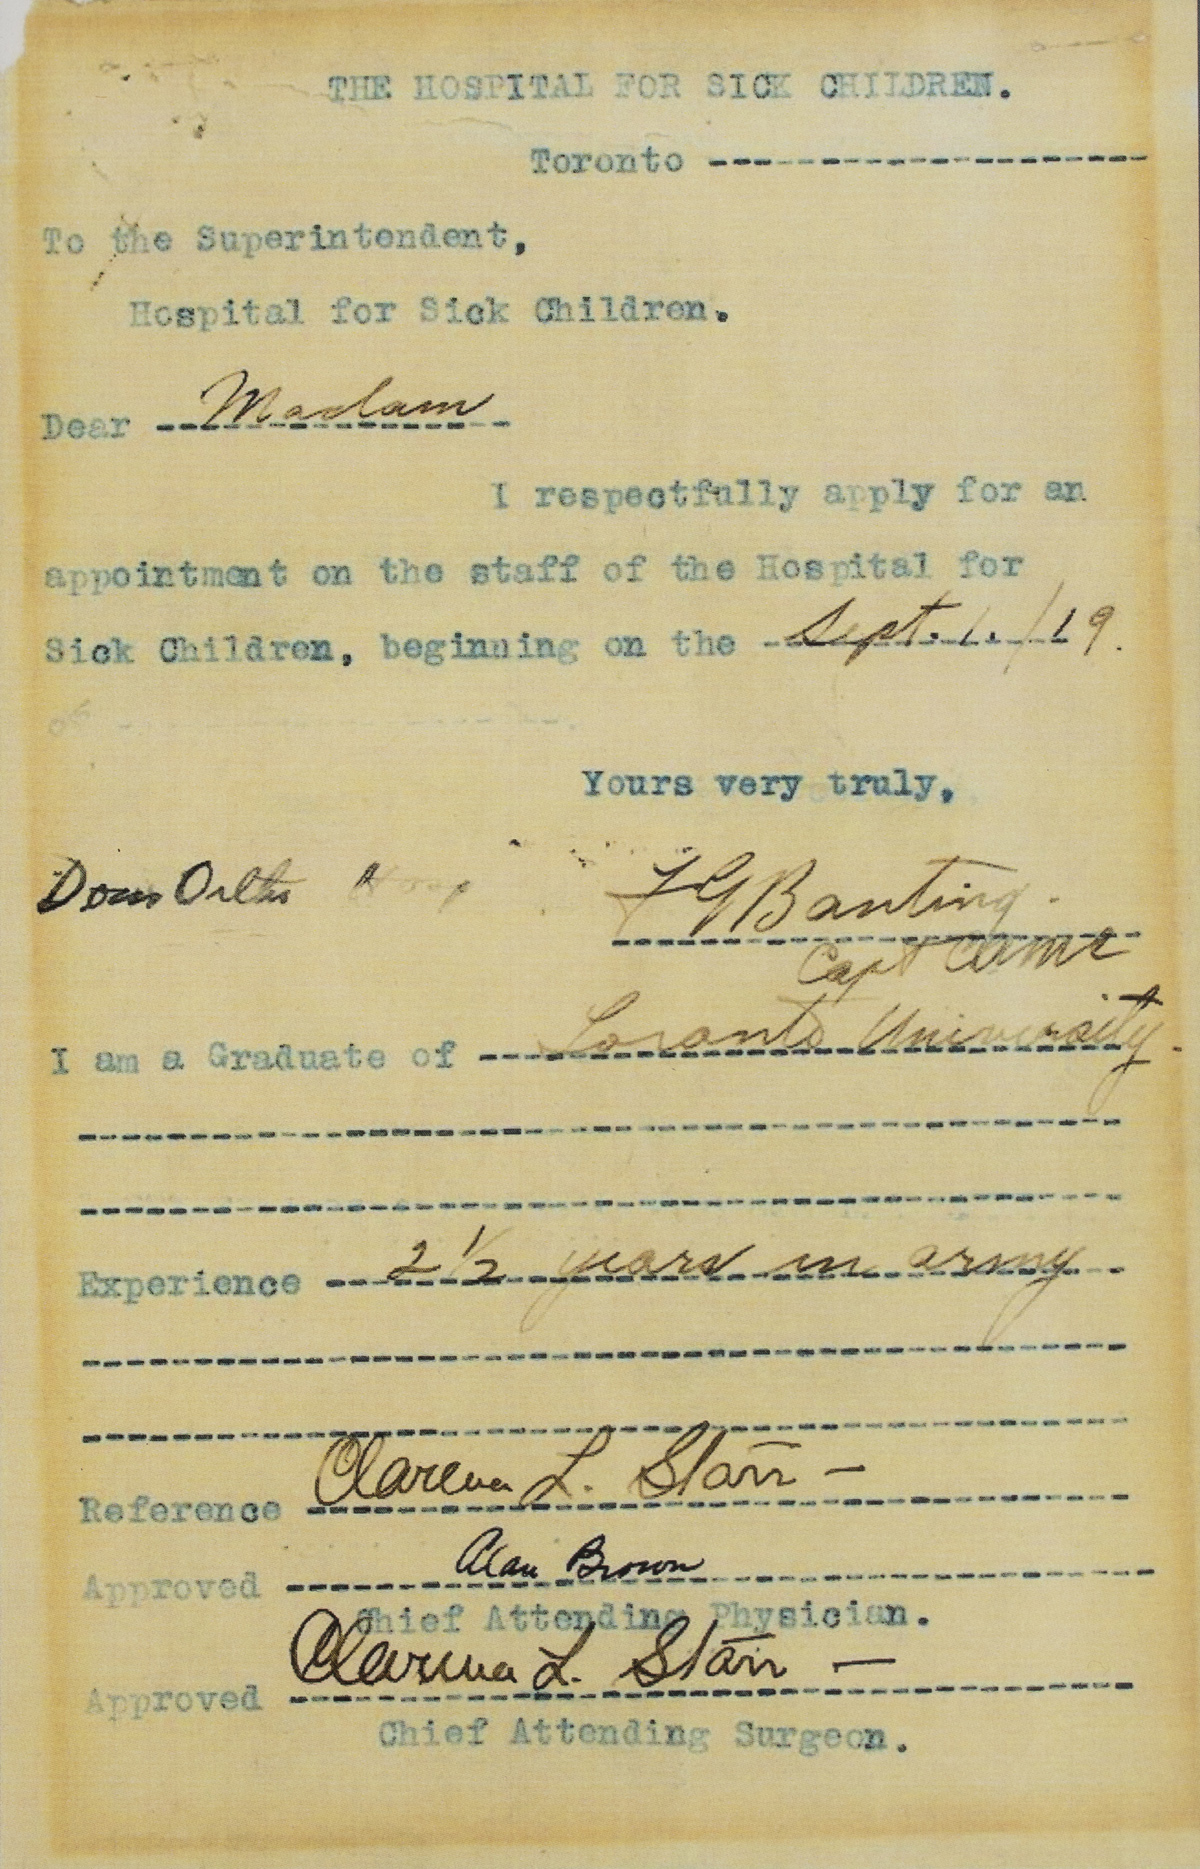 THE HOSPITAL FOR SICK CHILDREN.
Toronto --------------------
To the Superintendent,
Hospital for Sick Children.
Dear Madam
I respectfully apply for an
appointment on the staff of the Hospital for
Sick Children, beginning on the Sept. 1. /19.
Yours very truly,
Dom Ortho Hosp
F G Banting.
Capt CAMC
I am a Graduate of Toronto University.
Experience 2 1/2 years in army
Reference Clarence L. Starr —
Approved Alan Brown
Chief Attending Physician.
Approved Clarence L. Starr —
Chief Attending Surgeon.